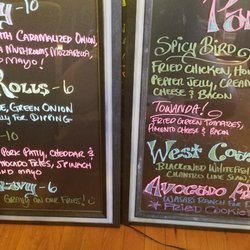 -10
WITH CARAMALIZED ONION,
MUSHROOMS, MOZZARELLA,
MAYO!
ROLLS -6
GREEN ONION
FOR DIPPING
-10
PORK PATTY, CHEDDAR &
AVOCADO FRIES, SPINACH
AND MAYO
-6
GRAVY ON OUR FRIES!
SPICY BIRD
FRIED CHICKEN,
PEPPER JELLY, CREAM
CHEESE & BACON
TOWANDA!
FRIED GREEN TOMATOES,
PIMENTO CHEESE & BACON
WEST COAST
BLACKENED WHITEFISH
CILANTRO LIME SLAW
AVOCADO
WASABI RANCH FOR
FRIED